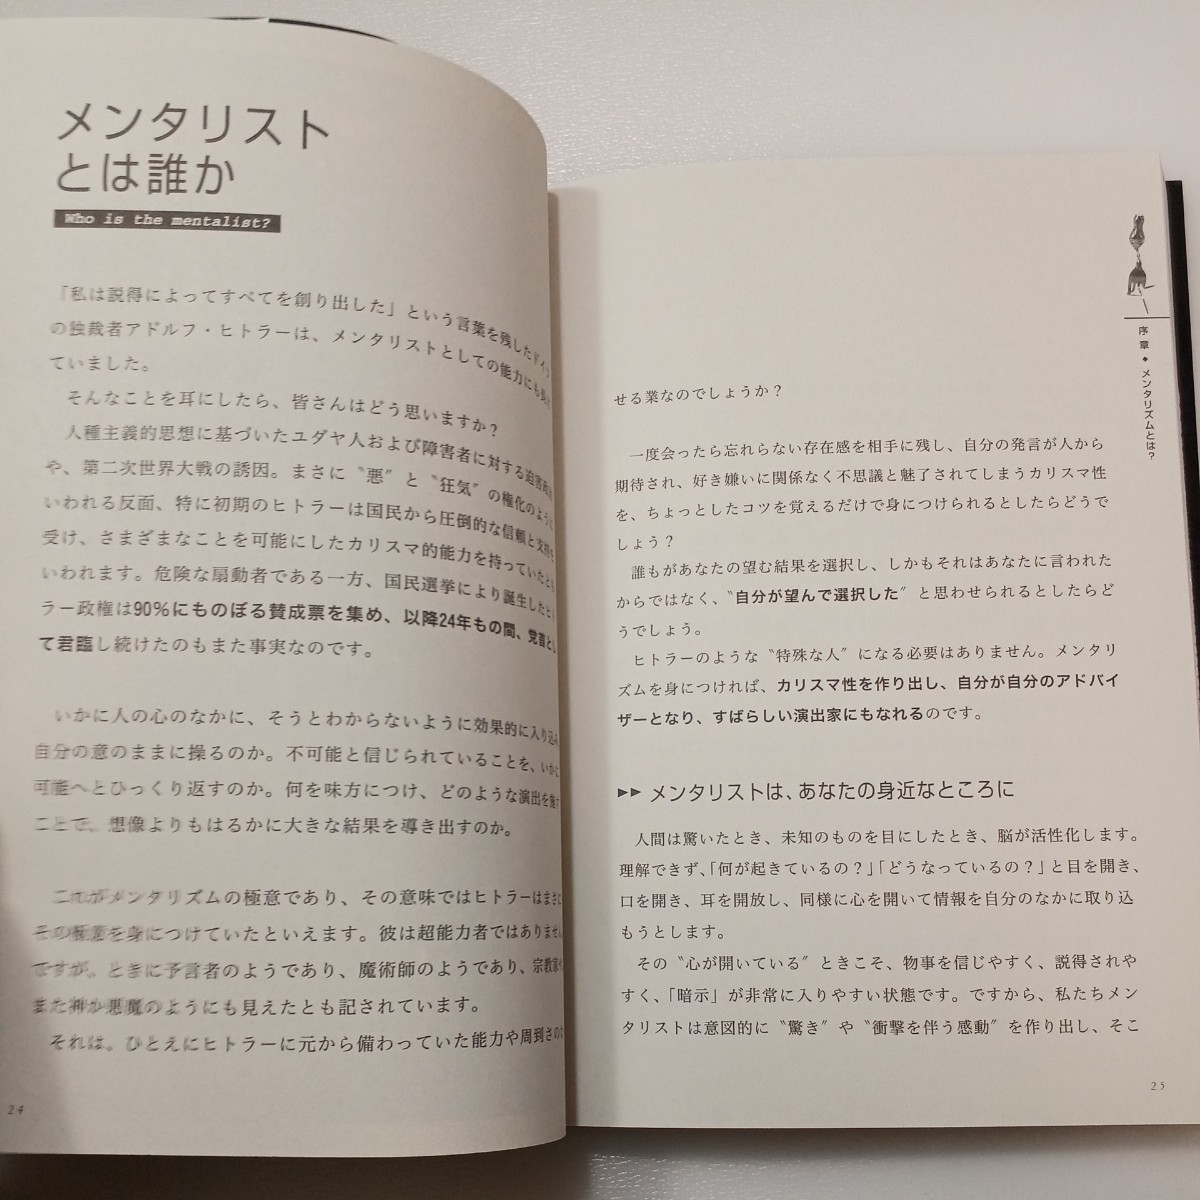 メンタリスト
とは誰か
Who is the mentalist?
「私は説得によってすべてを創り出した」という言葉を残したドイツ
の独裁者アドルフ・ヒトラーは、メンタリストとしての能力にも長け
ていました。
そんなことを耳にしたら、皆さんはどう思いますか？
人種主義的思想に基づいたユダヤ人および障害者に対する迫害
や、第二次世界大戦の誘因。まさに〝悪〟と〝狂気〟の権化のように
いわれる反面、特に初期のヒトラーは国民から圧倒的な信頼と支持を
受け、さまざまなことを可能にしたカリスマ的能力を持っていたとも
いわれます。危険な扇動者である一方、国民選挙により誕生したヒト
ラー政権は90％にものぼる賛成票を集め、以降24年もの間、党首とし
て君臨し続けたのもまた事実なのです。
いかに人の心のなかに、そうとわからないように効果的に入り込み
自分の意のままに操るのか。不可能と信じられていることを、いかに
可能へとひっくり返すのか。何を味方につけ、どのような演出を施す
ことで、想像よりもはるかに大きな結果を導き出すのか。
これがメンタリズムの極意であり、その意味ではヒトラーはまさに
その極意を身につけていたといえます。彼は超能力者ではありません
ですが、ときに予言者のようであり、魔術師のようであり、宗教家や
また神か悪魔のようにも見えたとも記されています。
それは、ひとえにヒトラーに元から備わっていた能力や周到さの
24
せる業なのでしょうか？
一度会ったら忘れらない存在感を相手に残し、自分の発言が人から
期待され、好き嫌いに関係なく不思議と魅了されてしまうカリスマ性
を、ちょっとしたコツを覚えるだけで身につけられるとしたらどうで
しょう？
誰もがあなたの望む結果を選択し、しかもそれはあなたに言われた
からではなく、〝自分が望んで選択した〟と思わせられるとしたらど
うでしょう。
ヒトラーのような〝特殊な人〟になる必要はありません。メンタリ
ズムを身につければ、カリスマ性を作り出し、自分が自分のアドバイ
ザーとなり、すばらしい演出家にもなれるのです。
▶▶ メンタリストは、あなたの身近なところに
人間は驚いたとき、未知のものを目にしたとき、脳が活性化します。
理解できず、「何が起きているの？」「どうなっているの？」と目を開き、
口を開き、耳を開放し、同様に心を開いて情報を自分のなかに取り込
もうとします。
その〝心が開いている〟ときこそ、物事を信じやすく、説得されや
すく、「暗示」が非常に入りやすい状態です。ですから、私たちメン
タリストは意図的に〝驚き〟や〝衝撃を伴う感動〟を作り出し、そこ
25
序章◆メンタリズムとは？